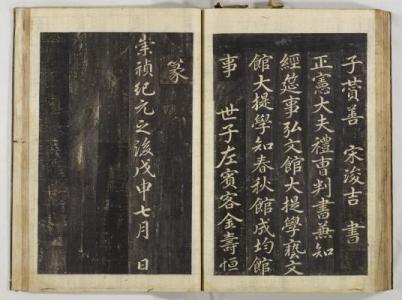 子贊善 宋浚吉 書
正憲大夫禮曹判書兼知
經筵事弘文館大提學藝文
館大提學知春秋館成均館
事 世子左賓客金壽恒
篆
崇禎紀元之後戊申七月 日